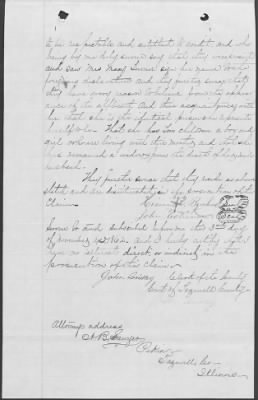 to be respectable and entitled to credit and who
being by me duly sworn say that they were present
and saw Mrs Mary sign her name to the
foregoing declaration and they further swear that
they have every reason to believe from the appear
ance of the applicant and their acquaintance with
her that she is the identical person she represents
herself to be. That she has two children a boy and
girl who are living with their mother and that she
has remained a widow since the death of her hus
band.
They further swear that they reside as above
stated and are disinterested in prosecution of this
Claim.
John
Sworn to and subscribed before me this day
of November AD 18 and I hereby certify that I
have no interest direct or indirect in the
prosecution of this Claim.
John Clerk of the County
Court of Tazewell County
Attorneys address
A B Sawyer
Pekin
Tazewell Co
Illinois